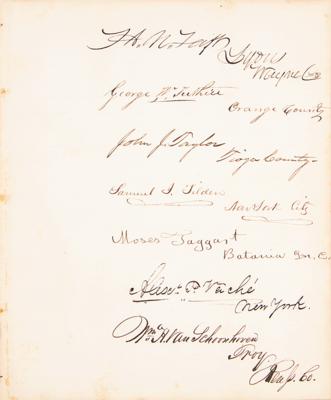 Lyons
Wayne Co
George W. Tuthill
Orange County
John J. Taylor
Tioga County
Samuel J. Tilden
New York City
Moses Taggart
Batavia Gen. Co.
Alexr. F. Vaché
New York.
Wm. H. Van Schoonhoven
Troy
Co.